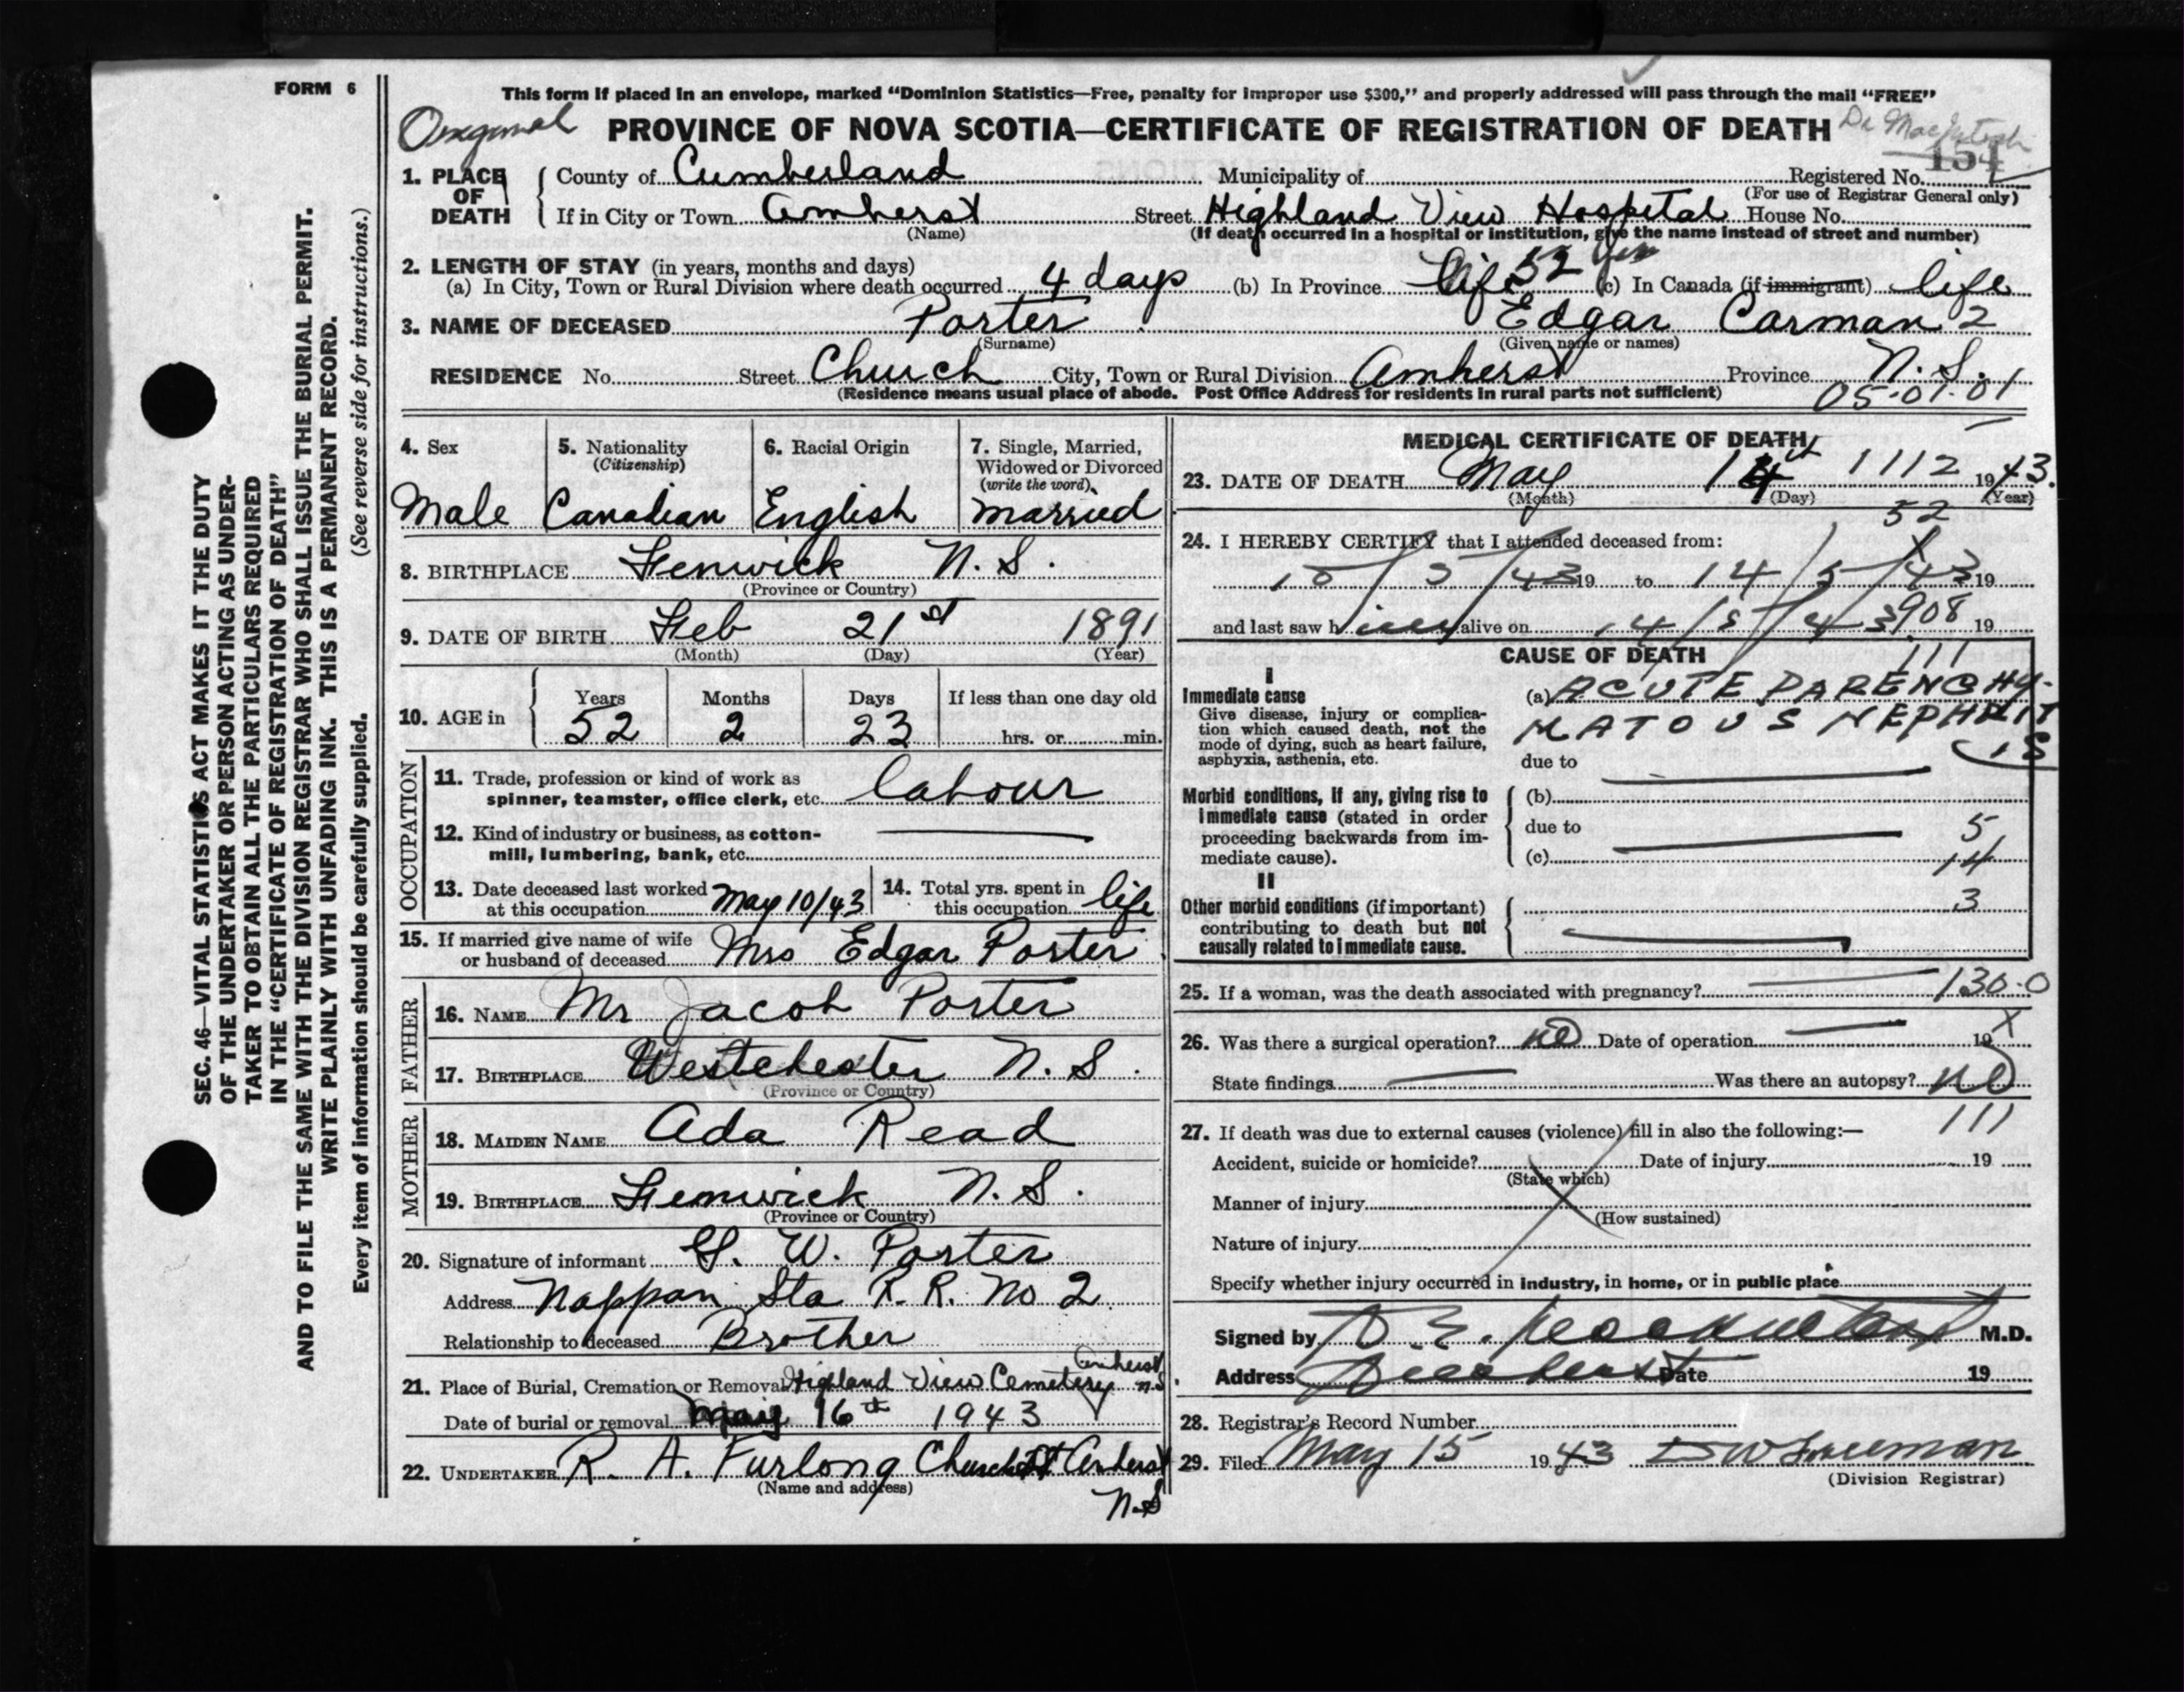 FORM 6
This form if placed in an envelope, marked "Dominion Statistics—Free, penalty for improper use $300," and properly addressed will pass through the mail "FREE"
Original PROVINCE OF NOVA SCOTIA—CERTIFICATE OF REGISTRATION OF DEATH Dr MacIntosh
154
1. PLACE OF DEATH County of Cumberland Municipality of Registered No.
(For use of Registrar General only)
If in City or Town Amherst Street Highland View Hospital House No.
(Name) (If death occurred in a hospital or institution, give the name instead of street and number)
2. LENGTH OF STAY (in years, months and days)
(a) In City, Town or Rural Division where death occurred 4 days (b) In Province life 52 yrs (c) In Canada (if immigrant) life
3. NAME OF DECEASED Porter Edgar Carman 2
(Surname) (Given name or names)
RESIDENCE No. Street Church City, Town or Rural Division Amherst Province N.S.
(Residence means usual place of abode. Post Office Address for residents in rural parts not sufficient) 05-01-01
4. Sex Male
5. Nationality (Citizenship) Canadian
6. Racial Origin English
7. Single, Married, Widowed or Divorced (write the word) married
8. BIRTHPLACE Fenwick N.S.
(Province or Country)
9. DATE OF BIRTH Feb 21st 1891
(Month) (Day) (Year)
10. AGE in Years 52 Months 2 Days 23 If less than one day old
hrs. or min.
OCCUPATION
11. Trade, profession or kind of work as spinner, teamster, office clerk, etc. labour
12. Kind of industry or business, as cotton-mill, lumbering, bank, etc.
13. Date deceased last worked at this occupation May 10/43
14. Total yrs. spent in this occupation life
15. If married give name of wife or husband of deceased Mrs Edgar Porter
FATHER
16. NAME Mr Jacob Porter
17. BIRTHPLACE Westchester N.S.
(Province or Country)
MOTHER
18. MAIDEN NAME Ada Read
19. BIRTHPLACE Fenwick N.S.
(Province or Country)
20. Signature of informant W. Porter
Address Nappan Sta R.R. No 2
Relationship to deceased Brother
21. Place of Burial, Cremation or Removal Highland View Cemetery Amherst N.S.
Date of burial or removal May 16th 1943
22. UNDERTAKER R. A. Furlong Church St Amherst
(Name and address)
N.S
MEDICAL CERTIFICATE OF DEATH
23. DATE OF DEATH May 14th 1112 1943.
(Month) (Day) (Year)
52
24. I HEREBY CERTIFY that I attended deceased from:
10/5/43 19 to 14/5/43 19
and last saw h alive on 14/5/43 19
908
CAUSE OF DEATH 111
I
Immediate cause
Give disease, injury or complication which caused death, not the mode of dying, such as heart failure, asphyxia, asthenia, etc.
(a) ACUTE PARENCHY-
MATOUS NEPHRIT
IS
due to
Morbid conditions, if any, giving rise to immediate cause (stated in order proceeding backwards from immediate cause).
(b)
due to 5
(c) 14
II
Other morbid conditions (if important) contributing to death but not causally related to immediate cause. 3
25. If a woman, was the death associated with pregnancy? 130.0
26. Was there a surgical operation? no Date of operation 19 X
State findings Was there an autopsy? no
111
27. If death was due to external causes (violence) fill in also the following:—
Accident, suicide or homicide? Date of injury 19
(State which)
Manner of injury
(How sustained)
Nature of injury
Specify whether injury occurred in industry, in home, or in public place
Signed by M.D.
Address Amherst Date 19
28. Registrar's Record Number
29. Filed May 15 1943 Freeman
(Division Registrar)
SEC. 46—VITAL STATISTICS ACT MAKES IT THE DUTY
OF THE UNDERTAKER OR PERSON ACTING AS UNDER-
TAKER TO OBTAIN ALL THE PARTICULARS REQUIRED
IN THE "CERTIFICATE OF REGISTRATION OF DEATH"
AND TO FILE THE SAME WITH THE DIVISION REGISTRAR WHO SHALL ISSUE THE BURIAL PERMIT.
WRITE PLAINLY WITH UNFADING INK. THIS IS A PERMANENT RECORD.
Every item of information should be carefully supplied. (See reverse side for instructions.)